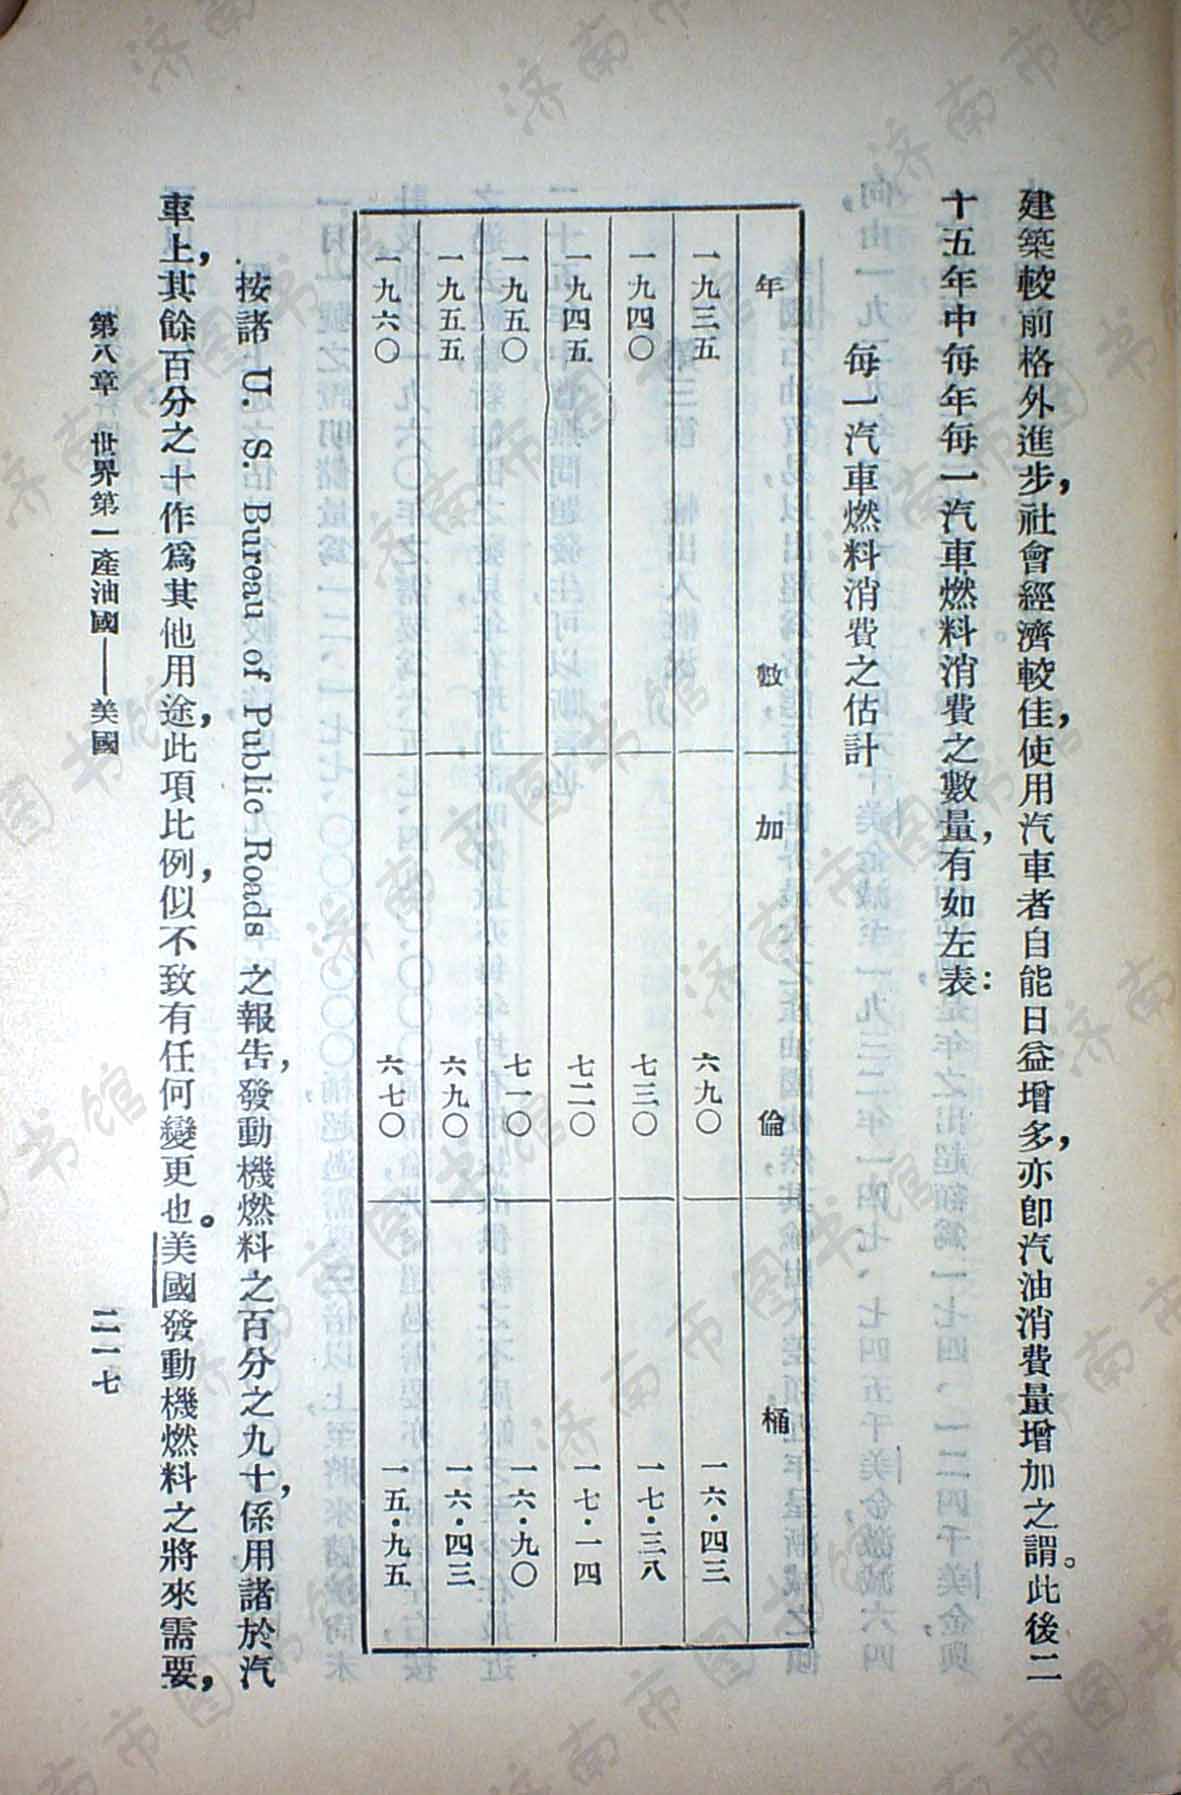 建築較前格外進步，社會經濟較佳，使用汽車者自能日益增多，亦卽汽油消費量增加之謂。此後二
十五年中每年每一汽車燃料消費之數量，有如左表：
每一汽車燃料消費之估計
年　數　加　倫　桶
一九三五　六九〇　一六・四三
一九四〇　七三〇　一七・三八
一九四五　七二〇　一七・一四
一九五〇　七一〇　一六・九〇
一九五五　六九〇　一六・四三
一九六〇　六七〇　一五・九五
按諸 U. S. Bureau of Public Roads 之報告，發動機燃料之百分之九十，係用諸於汽
車上，其餘百分之十作爲其他用途，此項比例，似不致有任何變更也。美國發動機燃料之將來需要，
第八章　世界第一產油國——美國
二一七
济南市图书馆